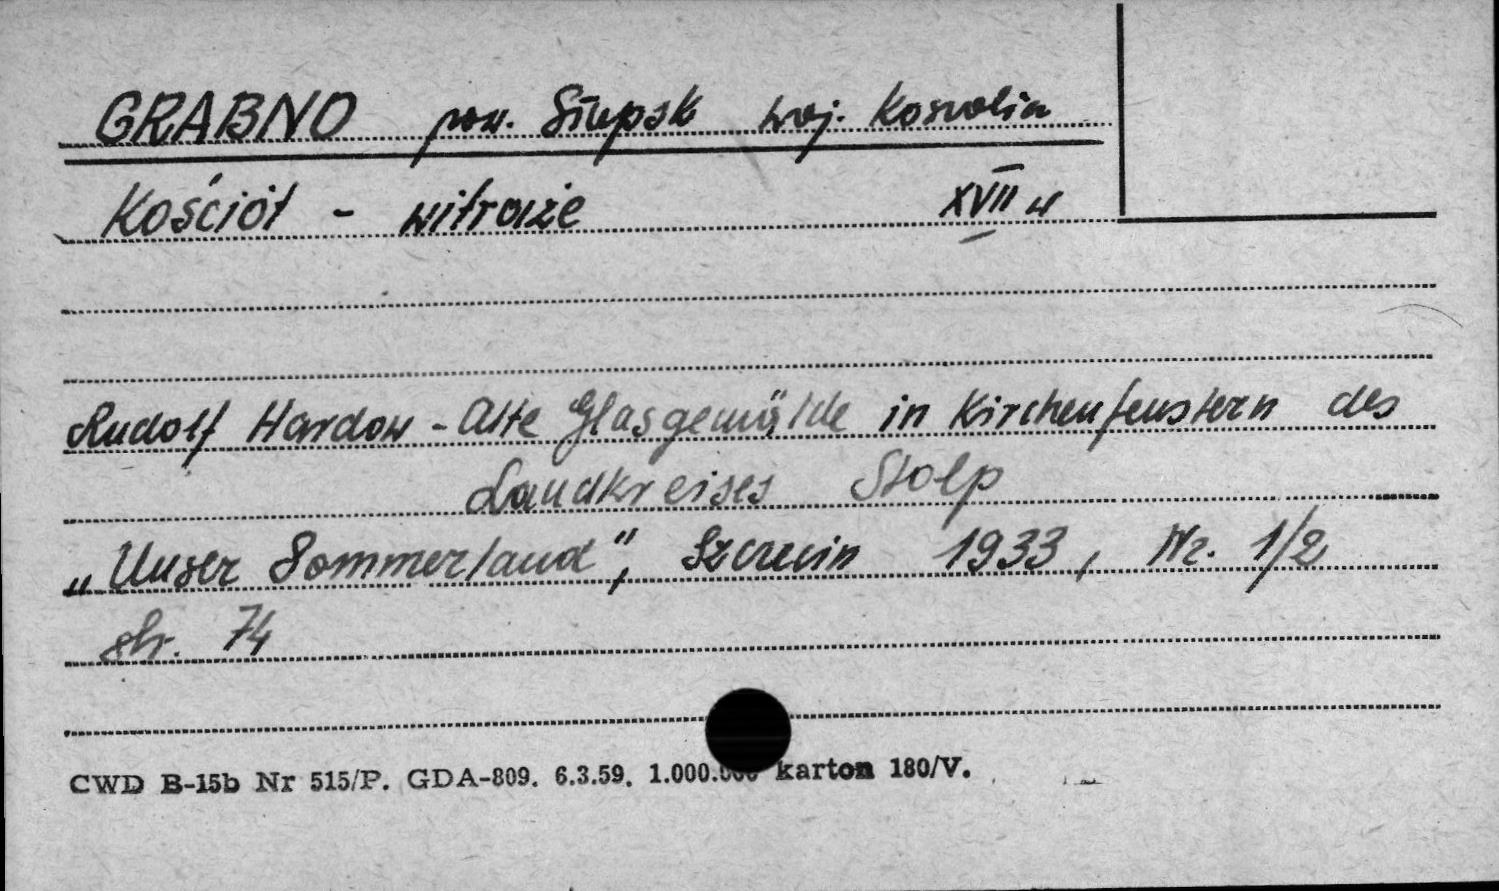 GRABNO pow. Słupsk woj. Koszalin
Kościół - witraże XVII w
Rudolf Hardow - Alte Glasgemälde in Kirchenfenstern des
Landkreises Stolp
„Unser Pommerland", Szczecin 1933, Nr. 1/2
str. 74
CWD B-15b Nr 515/P. GDA-809. 6.3.59. 1.000.000 karton 180/V.